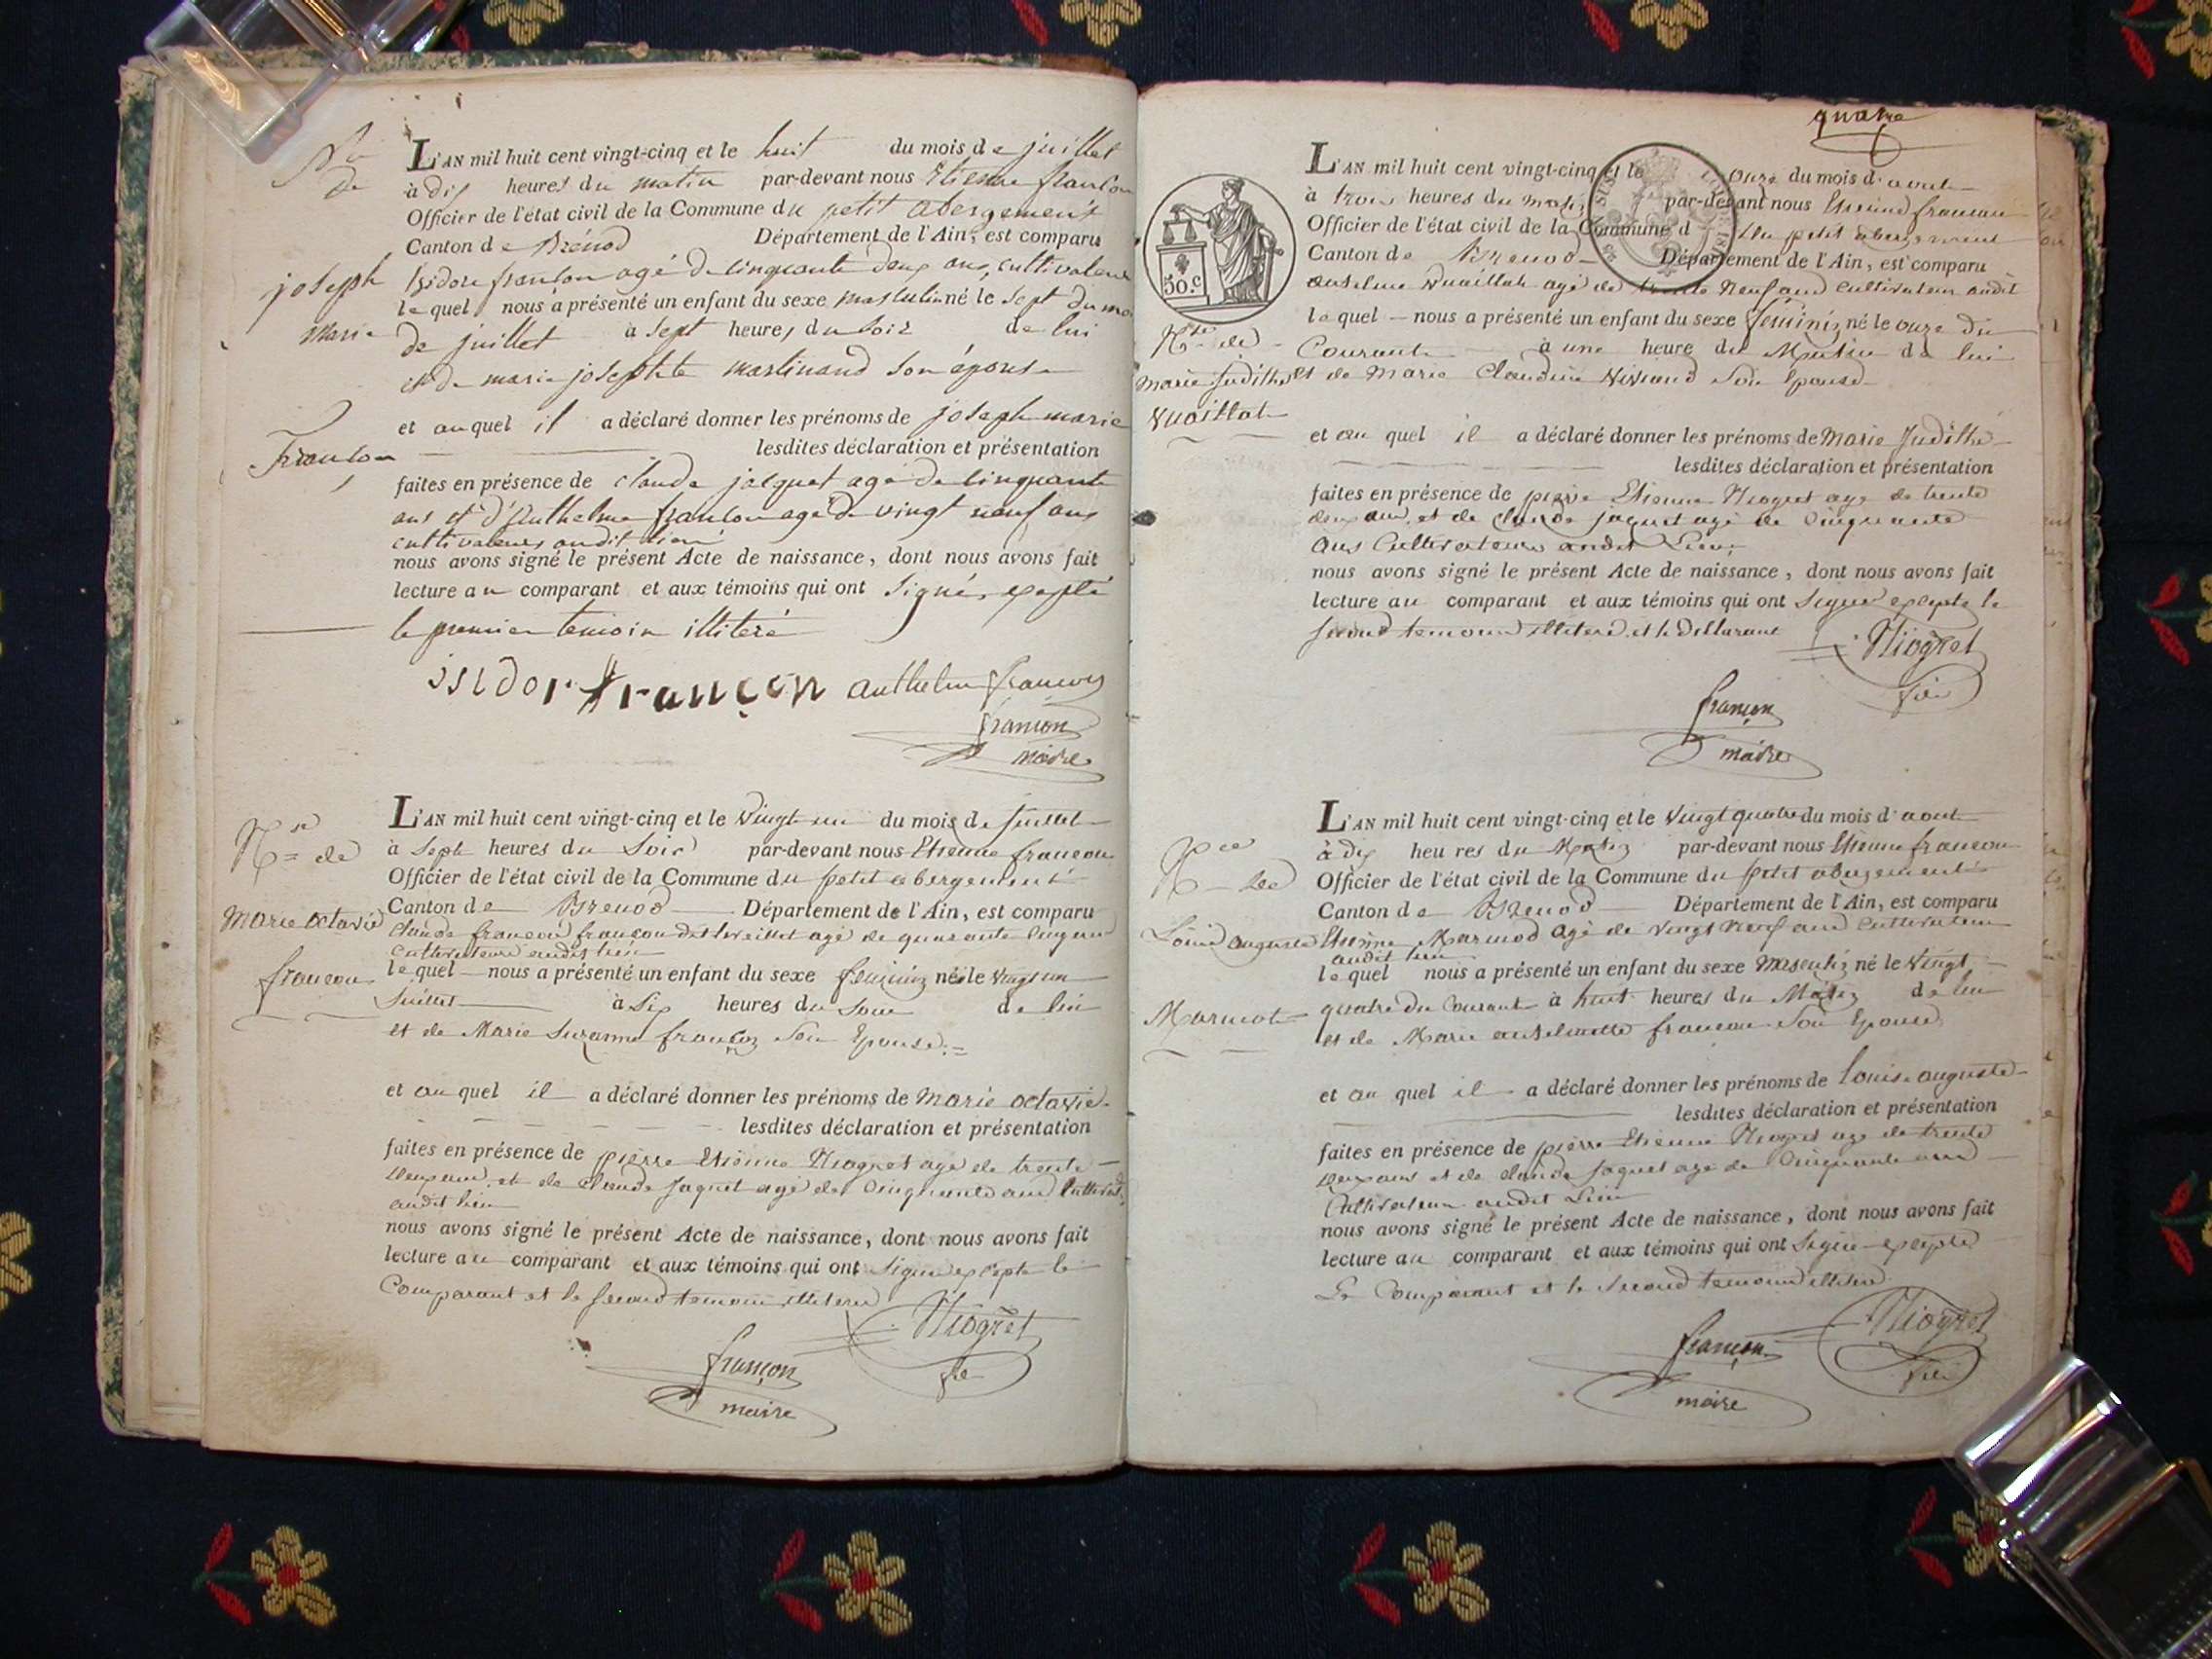 Nce
de
joseph
marie
Françon
L'AN mil huit cent vingt-cinq et le huit du mois de juillet
à dix heures du matin par-devant nous Etienne françon
Officier de l'état civil de la Commune du petit abergement
Canton de Brénod Département de l'Ain, est comparu
Isidore françon agé de cinquante deux ans, cultivateur
lequel nous a présenté un enfant du sexe masculin né le sept du mois
de juillet à sept heures du soir de lui
et de marie josephte martinand son épouse
et auquel il a déclaré donner les prénoms de joseph marie
lesdites déclaration et présentation
faites en présence de claude jacquet agé de cinquante
ans et d'Anthelme françon agé de vingt neuf ans
cultivateurs audit lieu
nous avons signé le présent Acte de naissance, dont nous avons fait
lecture au comparant et aux témoins qui ont signé, excepté
le premier temoin illiteré
isidor françon anthelme françon
françon
maire
Nce de
Marie octavie
francon
L'AN mil huit cent vingt-cinq et le vingt un du mois de Juillet
à Sept heures du Soir par-devant nous Etienne francon
Officier de l'état civil de la Commune du petit abergement
Canton de Brenod Département de l'Ain, est comparu
Claude francon francon dit agé de quarante Cinq ans
Cultivateur audit lieu
lequel nous a présenté un enfant du sexe feminin né le vingt un
Juillet à Six heures du Soir de lui
et de Marie Suzanne françon Son Epouse
et auquel il a déclaré donner les prénoms de Marie octavie
lesdites déclaration et présentation
faites en présence de pierre Etienne Niogret agé de trente
deux ans et de Claude Jaquet agé de Cinquante ans
audit lieu
nous avons signé le présent Acte de naissance, dont nous avons fait
lecture au comparant et aux témoins qui ont Signé excepté le
Comparant et le Second temoin illiteré
Niogret
françon
maire
quatre
50.c
Nce de
Marie Judithe
Vuaillat
L'AN mil huit cent vingt-cinq et le onze du mois d'aout
à trois heures du matin par-devant nous Etienne francon
Officier de l'état civil de la Commune d du petit abergement
Canton de Brenod Département de l'Ain, est comparu
anselme Vuaillat agé de trente Neuf ans Cultivateur audit
lequel nous a présenté un enfant du sexe feminin né le onze du
Courant à une heure du Matin de lui
et de Marie Claudine Son Epouse
et auquel il a déclaré donner les prénoms de Marie Judithe
lesdites déclaration et présentation
faites en présence de pierre Etienne Niogret agé de trente
deux ans, et de Claude jaquet agé de Cinquante
ans Cultivateurs audit Lieu
nous avons signé le présent Acte de naissance, dont nous avons fait
lecture au comparant et aux témoins qui ont Signé excepté le
second temoin illiteré et le declarant
Niogret
françon
maire
Nce de
Louise auguste
Marmot
L'AN mil huit cent vingt-cinq et le vingt quatre du mois d'aout
à dix heures du Matin par-devant nous Etienne francon
Officier de l'état civil de la Commune du petit abergement
Canton de Brenod Département de l'Ain, est comparu
Etienne Marmod agé de vingt Neuf ans Cultivateur
audit lieu
lequel nous a présenté un enfant du sexe Masculin né le Vingt
quatre du Courant à huit heures du Matin de lui
et de Marie francon Son Epouse
et auquel il a déclaré donner les prénoms de louise auguste
lesdites déclaration et présentation
faites en présence de pierre Etienne Niogret agé de trente
deux ans et de claude Jaquet agé de Cinquante ans
Cultivateurs audit Lieu
nous avons signé le présent Acte de naissance, dont nous avons fait
lecture au comparant et aux témoins qui ont Signé excepté
Le Comparant et le Second temoin illiteré
Niogret
françon
maire